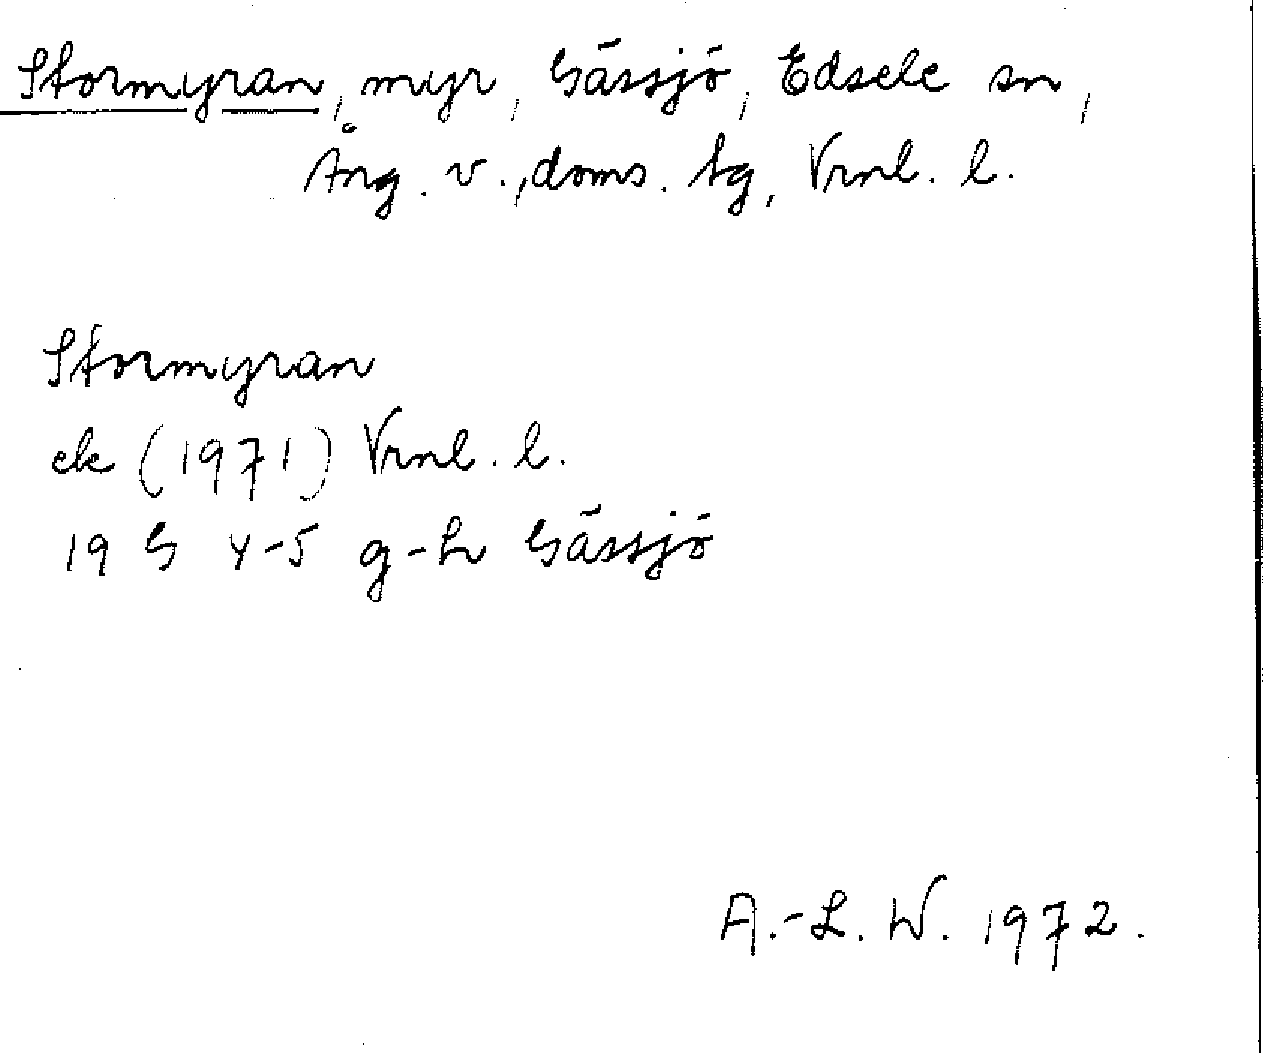 Stormyran, myr, Gåssjö, Edsele sn,
Ång. v., doms. tg, Vrnl. l.
Stormyran
ek (1971) Vrnl. l.
19 G 4-5 g-h Gåssjö
A.-L. W. 1972.